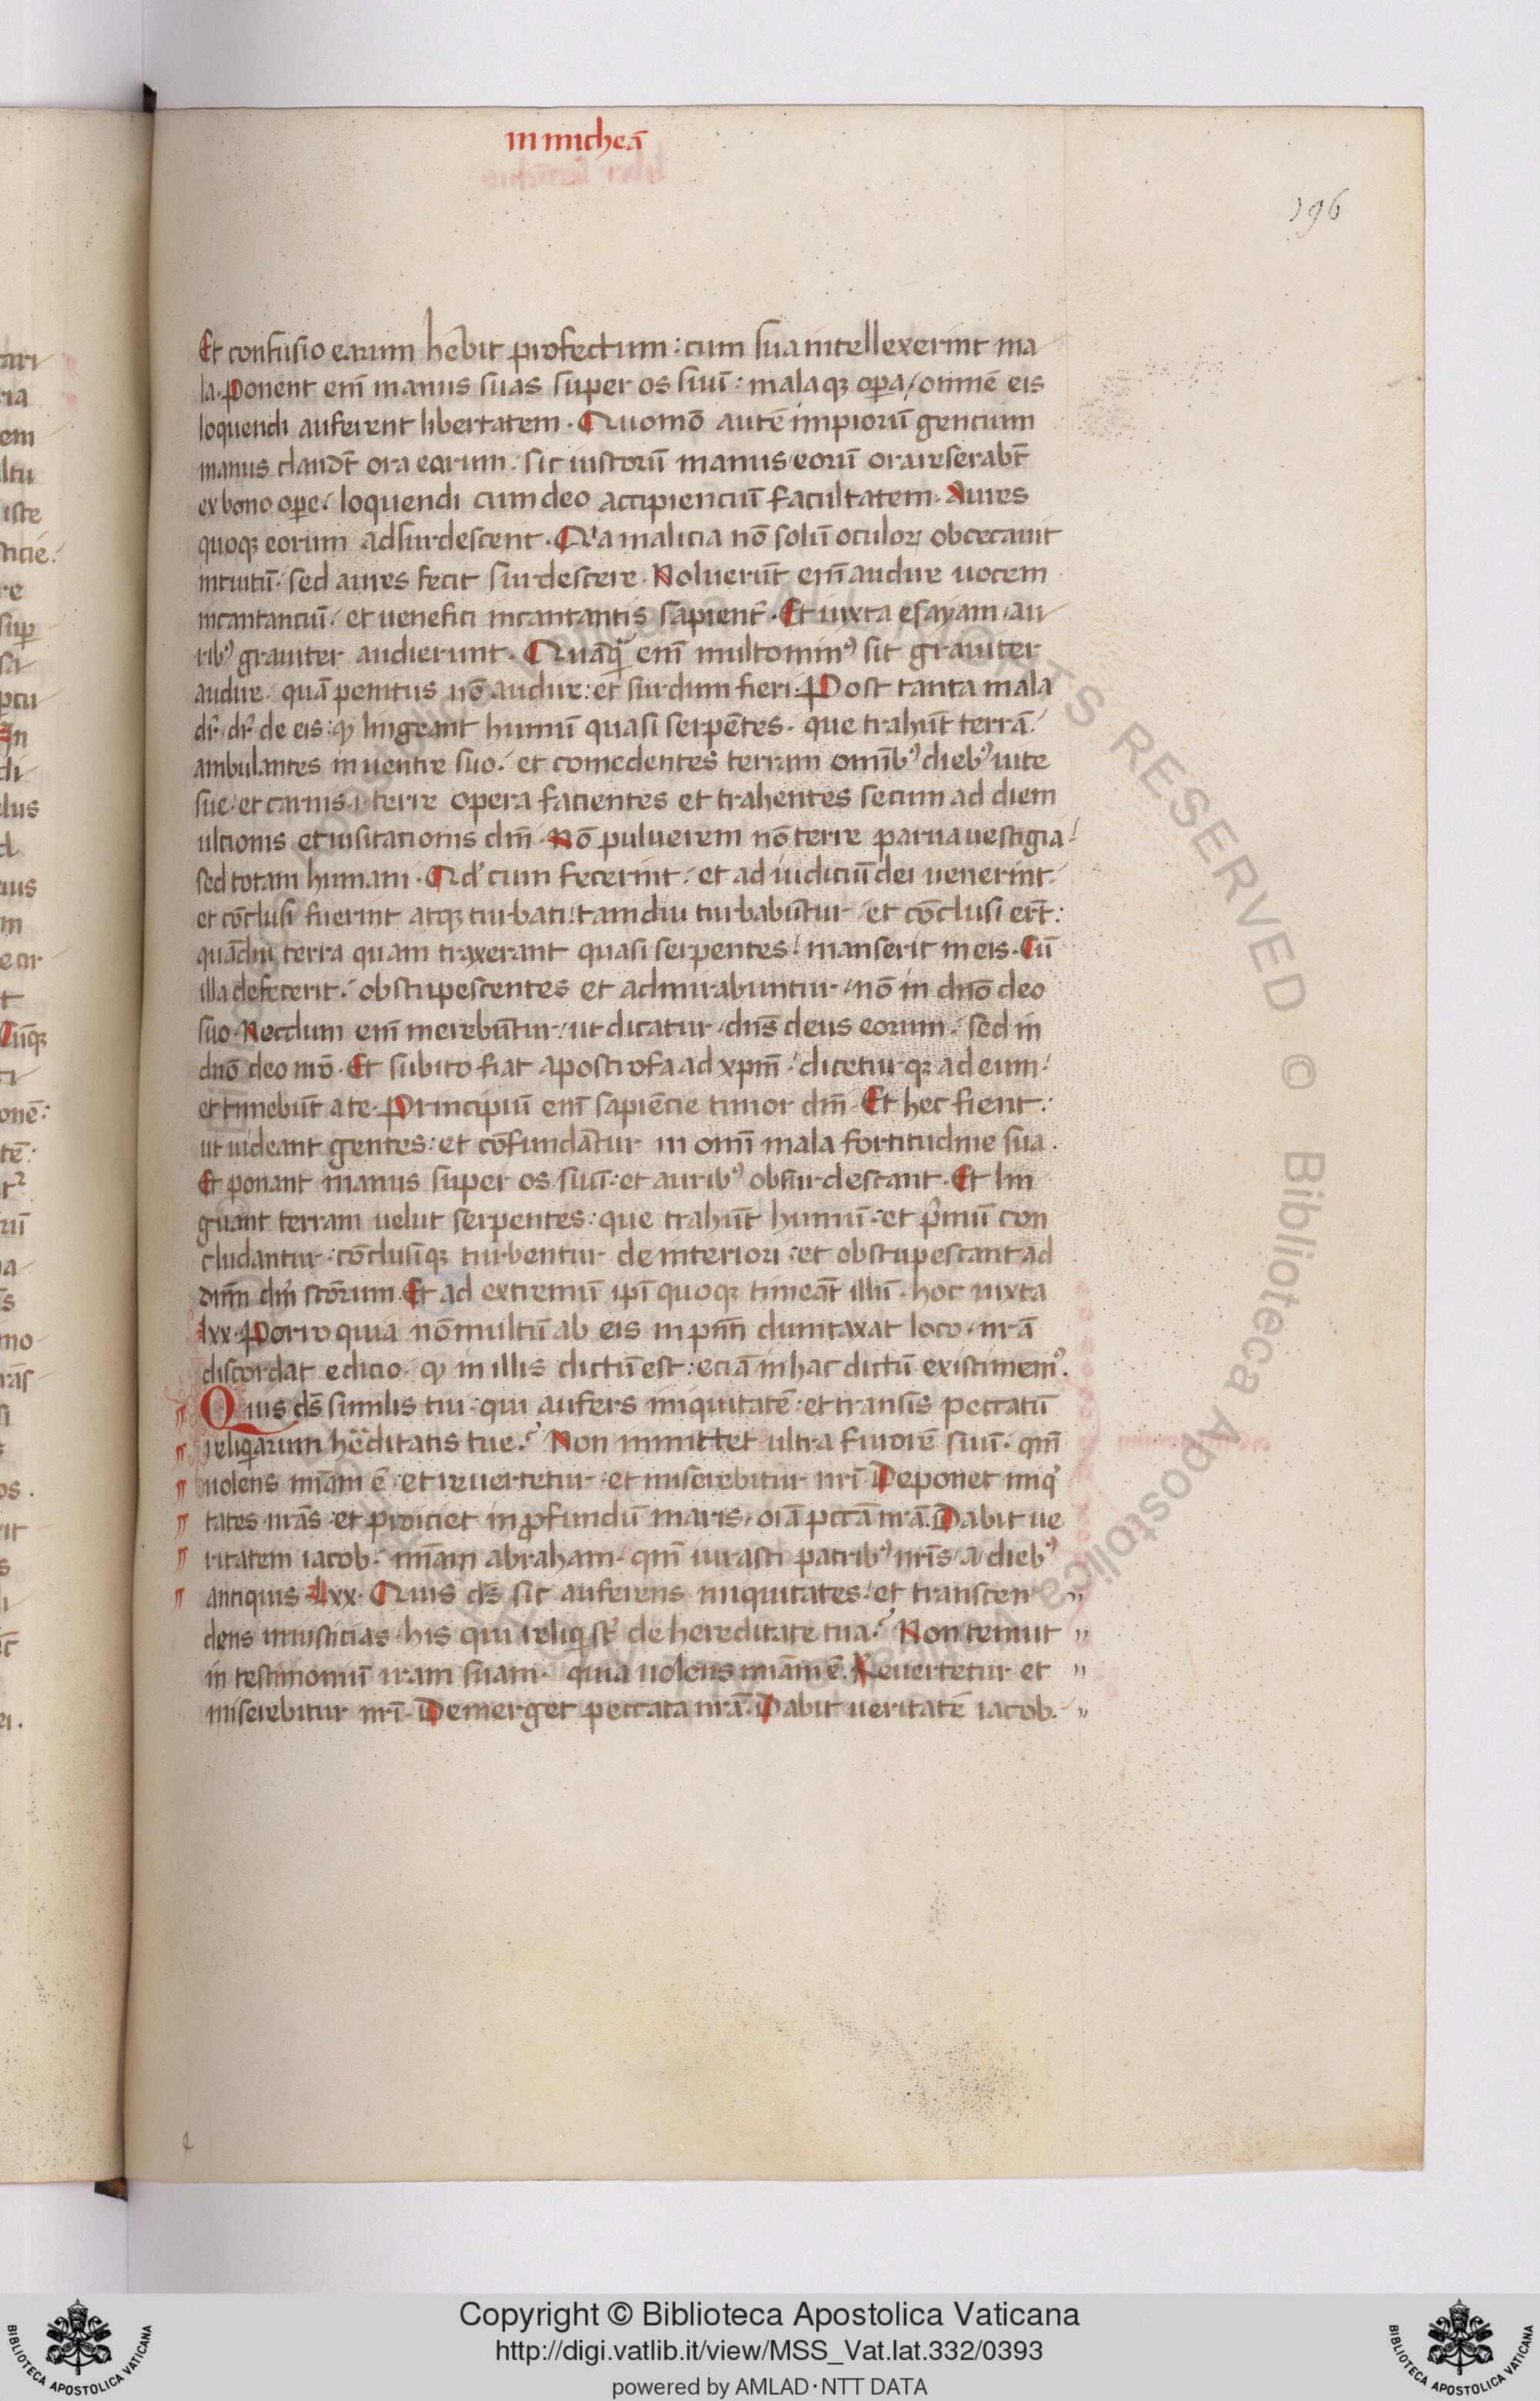 in micheā
196
Et confusio earum hēbit profectum : cum sua intellexerint ma
la. Ponent enī manus suas super os suū : malaqꝫ oꝑa / omnē eis
loquendi auferent libertatem. Quomō autē impiorū gencium
manus claudt̄ ora earum : sic iustorū manus eorū ora reserabt̄
ex bono oꝑe / loquendi cum deo accipienciū facultatem. Aures
quoqꝫ eorum adsurdescent. Qͥa malicia nō solū oculoꝝ obcecauit
intuitū / sed aures fecit surdescere. Noluerūt enī audire uocem
incantanciū / et uenefici incantantis sapient̄. Et iuxta esayam au
ribꝰ grauiter audierunt. Quāqͣ enī multominꝰ sit grauiter
audire quā penitus nō audire : et surdum fieri. Post tanta mala
dr̄ dr̄ de eis : ꝙ lingeant humū quasi serpētes. que trahūt terrā
ambulantes in uentre suo / et comedentes terram omībꝰ diebꝰ uite
sue / et carnis .i. terre opera facientes et trahentes secum ad diem
ultionis et uisitacionis dn̄i. Nō puluerem nō terre parua uestigia
sed totam humani. Qd' cum fecerint / et ad iudiciū dei uenerint
et cōclusi fuerint atqꝫ turbati : tamdiu turbabūtur et cōclusi ert̄ :
quādiu terra quam traxerant quasi serpentes / manserit in eis. Cū
illa defecerit / obstupescentes et admirabuntur nō in dnō deo
suo. Necdum enī merebūtur ut dicatur dn̄s deus eorum / sed in
dnō deo nr̄o. Et subito fiat apostrofa ad xp̄m / diceturqꝫ ad eum
et timebūt a te. Principiū enī sapiēcie timor dn̄i. Et hec fient :
ut uideant gentes : et cōfundātur in omī mala fortitudine sua.
Et ponant manus super os suū : et auribꝰ obsurdescant. Et lin
guant terram uelut serpentes : que trahūt humū : et pͥmū con
cludantur : cōclusiqꝫ turbentur de interiori : et obstupescant ad
dn̄m dm̄ scōrum. Et ad extremū ip̄i quoqꝫ timeāt illū. hoc iuxta
lxx. Porro quia nō multū ab eis in pn̄ti dumtaxat loco nr̄a
discordat edicio. ꝙ in illis dictū est : eciā in hac dictū existimemꝰ.
Quis ds̄ similis tui : qui aufers iniquitatē : et transis peccatū
reliqͣrum hēditatis tue ? Non inmittet ultra furorē suū. qm̄
uolens mīam ē et reuertetur et miserebitur nr̄i. Deponet iniqͥ
tates nr̄as et proiciet in ꝓfundū maris oīa pctā nr̄a. Dabit ue
ritatem iacob. mīam abraham. qm̄ iurasti patribꝰ nr̄is a diebꝰ
antiquis. Lxx. Quis ds̄ sic auferens iniquitates et transcen
dens iniusticias his qui reliqͥ st̄ de hereditate tua ? Non tenuit
in testimoniū iram suam. quia uolens mīam ē. Reuertetur et
miserebitur nr̄i. Demerget peccata nr̄a. Dabit ueritatē iacob.
Copyright © Biblioteca Apostolica Vaticana
http://digi.vatlib.it/view/MSS_Vat.lat.332/0393
powered by AMLAD·NTT DATA